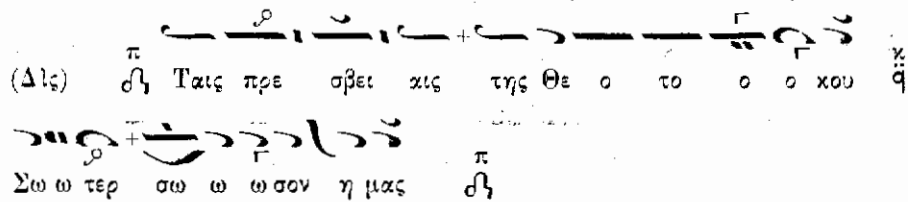 π
(Δὶς) Ταις πρε σβει αις της Θε ο το ο ο κου
Σω ω τερ σω ω ω σον η μας
π